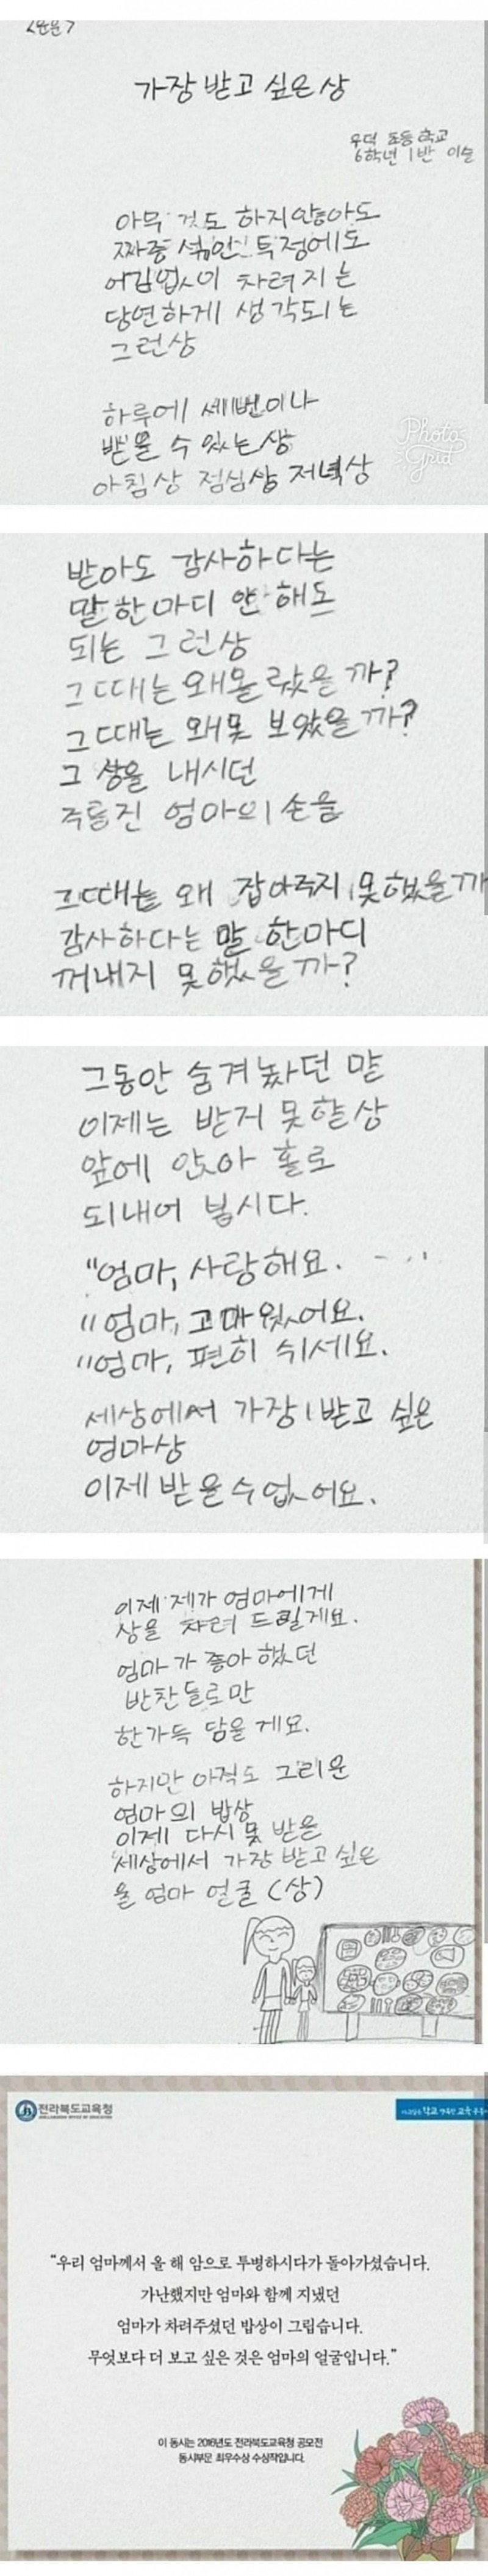 <운문>
가장 받고 싶은 상
우덕 초등학교
6학년 1반 이슬
아무 것도 하지않아도
짜증 섞인 투정에도
어김없이 차려지는
당연하게 생각되는
그런상
하루에 세번이나
받을 수 있는상
아침상 점심상 저녁상
Photo
Grid
받아도 감사하다는
말 한마디 안해도
되는 그런상
그때는 왜몰랐을까?
그때는 왜못 보았을까?
그 상을 내시던
주름진 엄마의 손을
그때는 왜 잡아주지 못했을까
감사하다는 말 한마디
꺼내지 못했을까?
그동안 숨겨놨던 말
이제는 받지 못할상
앞에 앉아 홀로
되내어 봅시다.
"엄마, 사랑해요.
"엄마, 고마웠어요.
"엄마, 편히 쉬세요.
세상에서 가장 받고 싶은
엄마상
이제 받을수없어요.
이제 제가 엄마에게
상을 차려 드릴게요.
엄마가 좋아했던
반찬들로만
한가득 담을게요.
하지만 아직도 그리운
엄마의 밥상
이제 다시 못 받을
세상에서 가장 받고싶은
울 엄마 얼굴 (상)
전라북도교육청
"우리 엄마께서 올 해 암으로 투병하시다가 돌아가셨습니다.
가난했지만 엄마와 함께 지냈던
엄마가 차려주셨던 밥상이 그립습니다.
무엇보다 더 보고 싶은 것은 엄마의 얼굴입니다."
이 동시는 2016년도 전라북도교육청 공모전
동시부문 최우수상 수상작입니다.